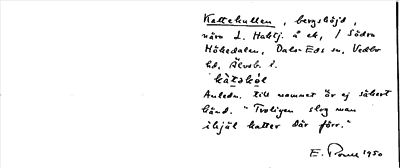 Kattekullen, bergshöjd,
nära L. Habsj. å ek, i Södra
Höbedalen, Dals-Eds sn, Vedbo
hd, Älvsb. l.
kàtəkə́l
Anledn. till namnet är ej säkert
känd. "Troligen slog man
ihjäl katter där förr."
E. 1950